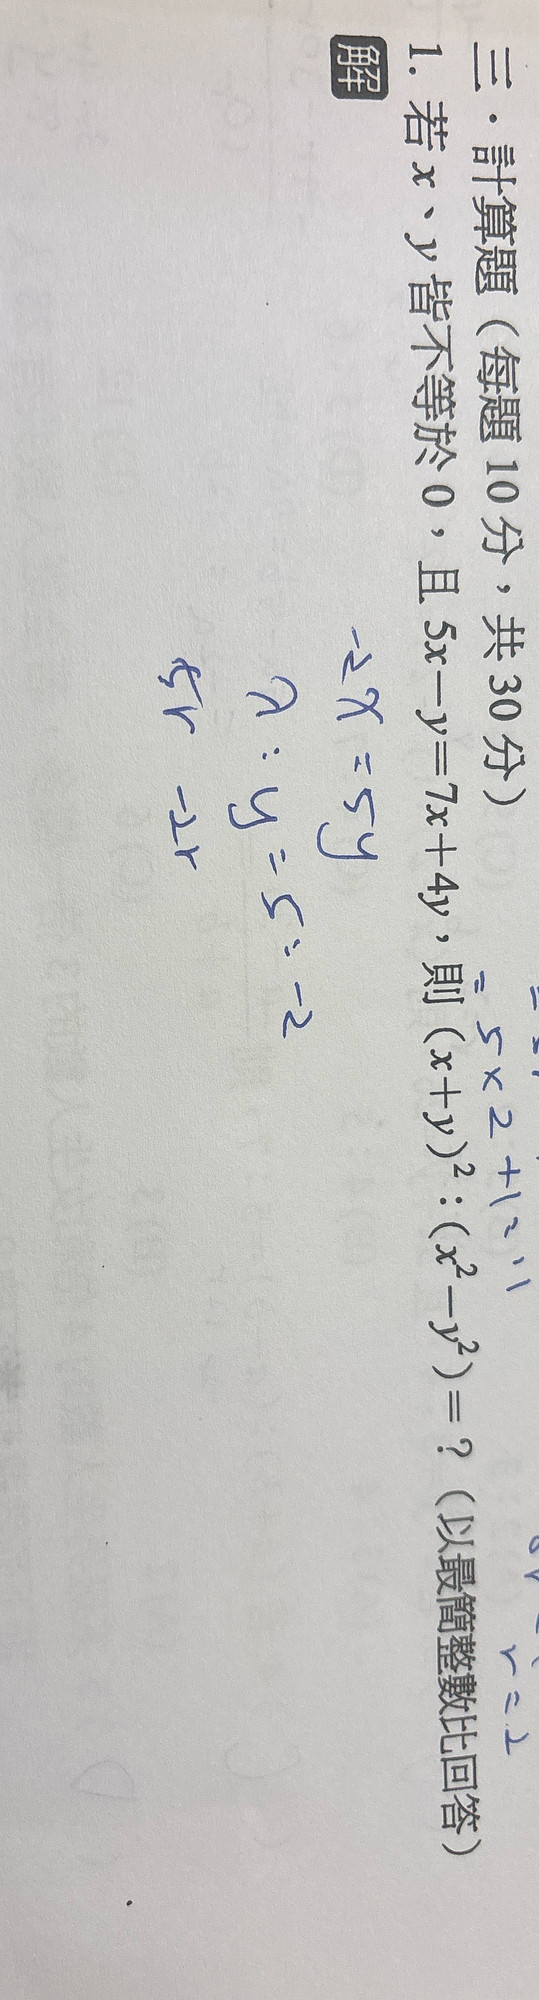 三．計算題（每題 10 分，共 30 分）
1. 若 x、y 皆不等於 0，且 5x－y＝7x＋4y，則 (x＋y)²：(x²－y²)＝？（以最簡整數比回答）
解
= 5×2+1=11
r=2
-2x=5y
x:y=5:-2
5r -2r